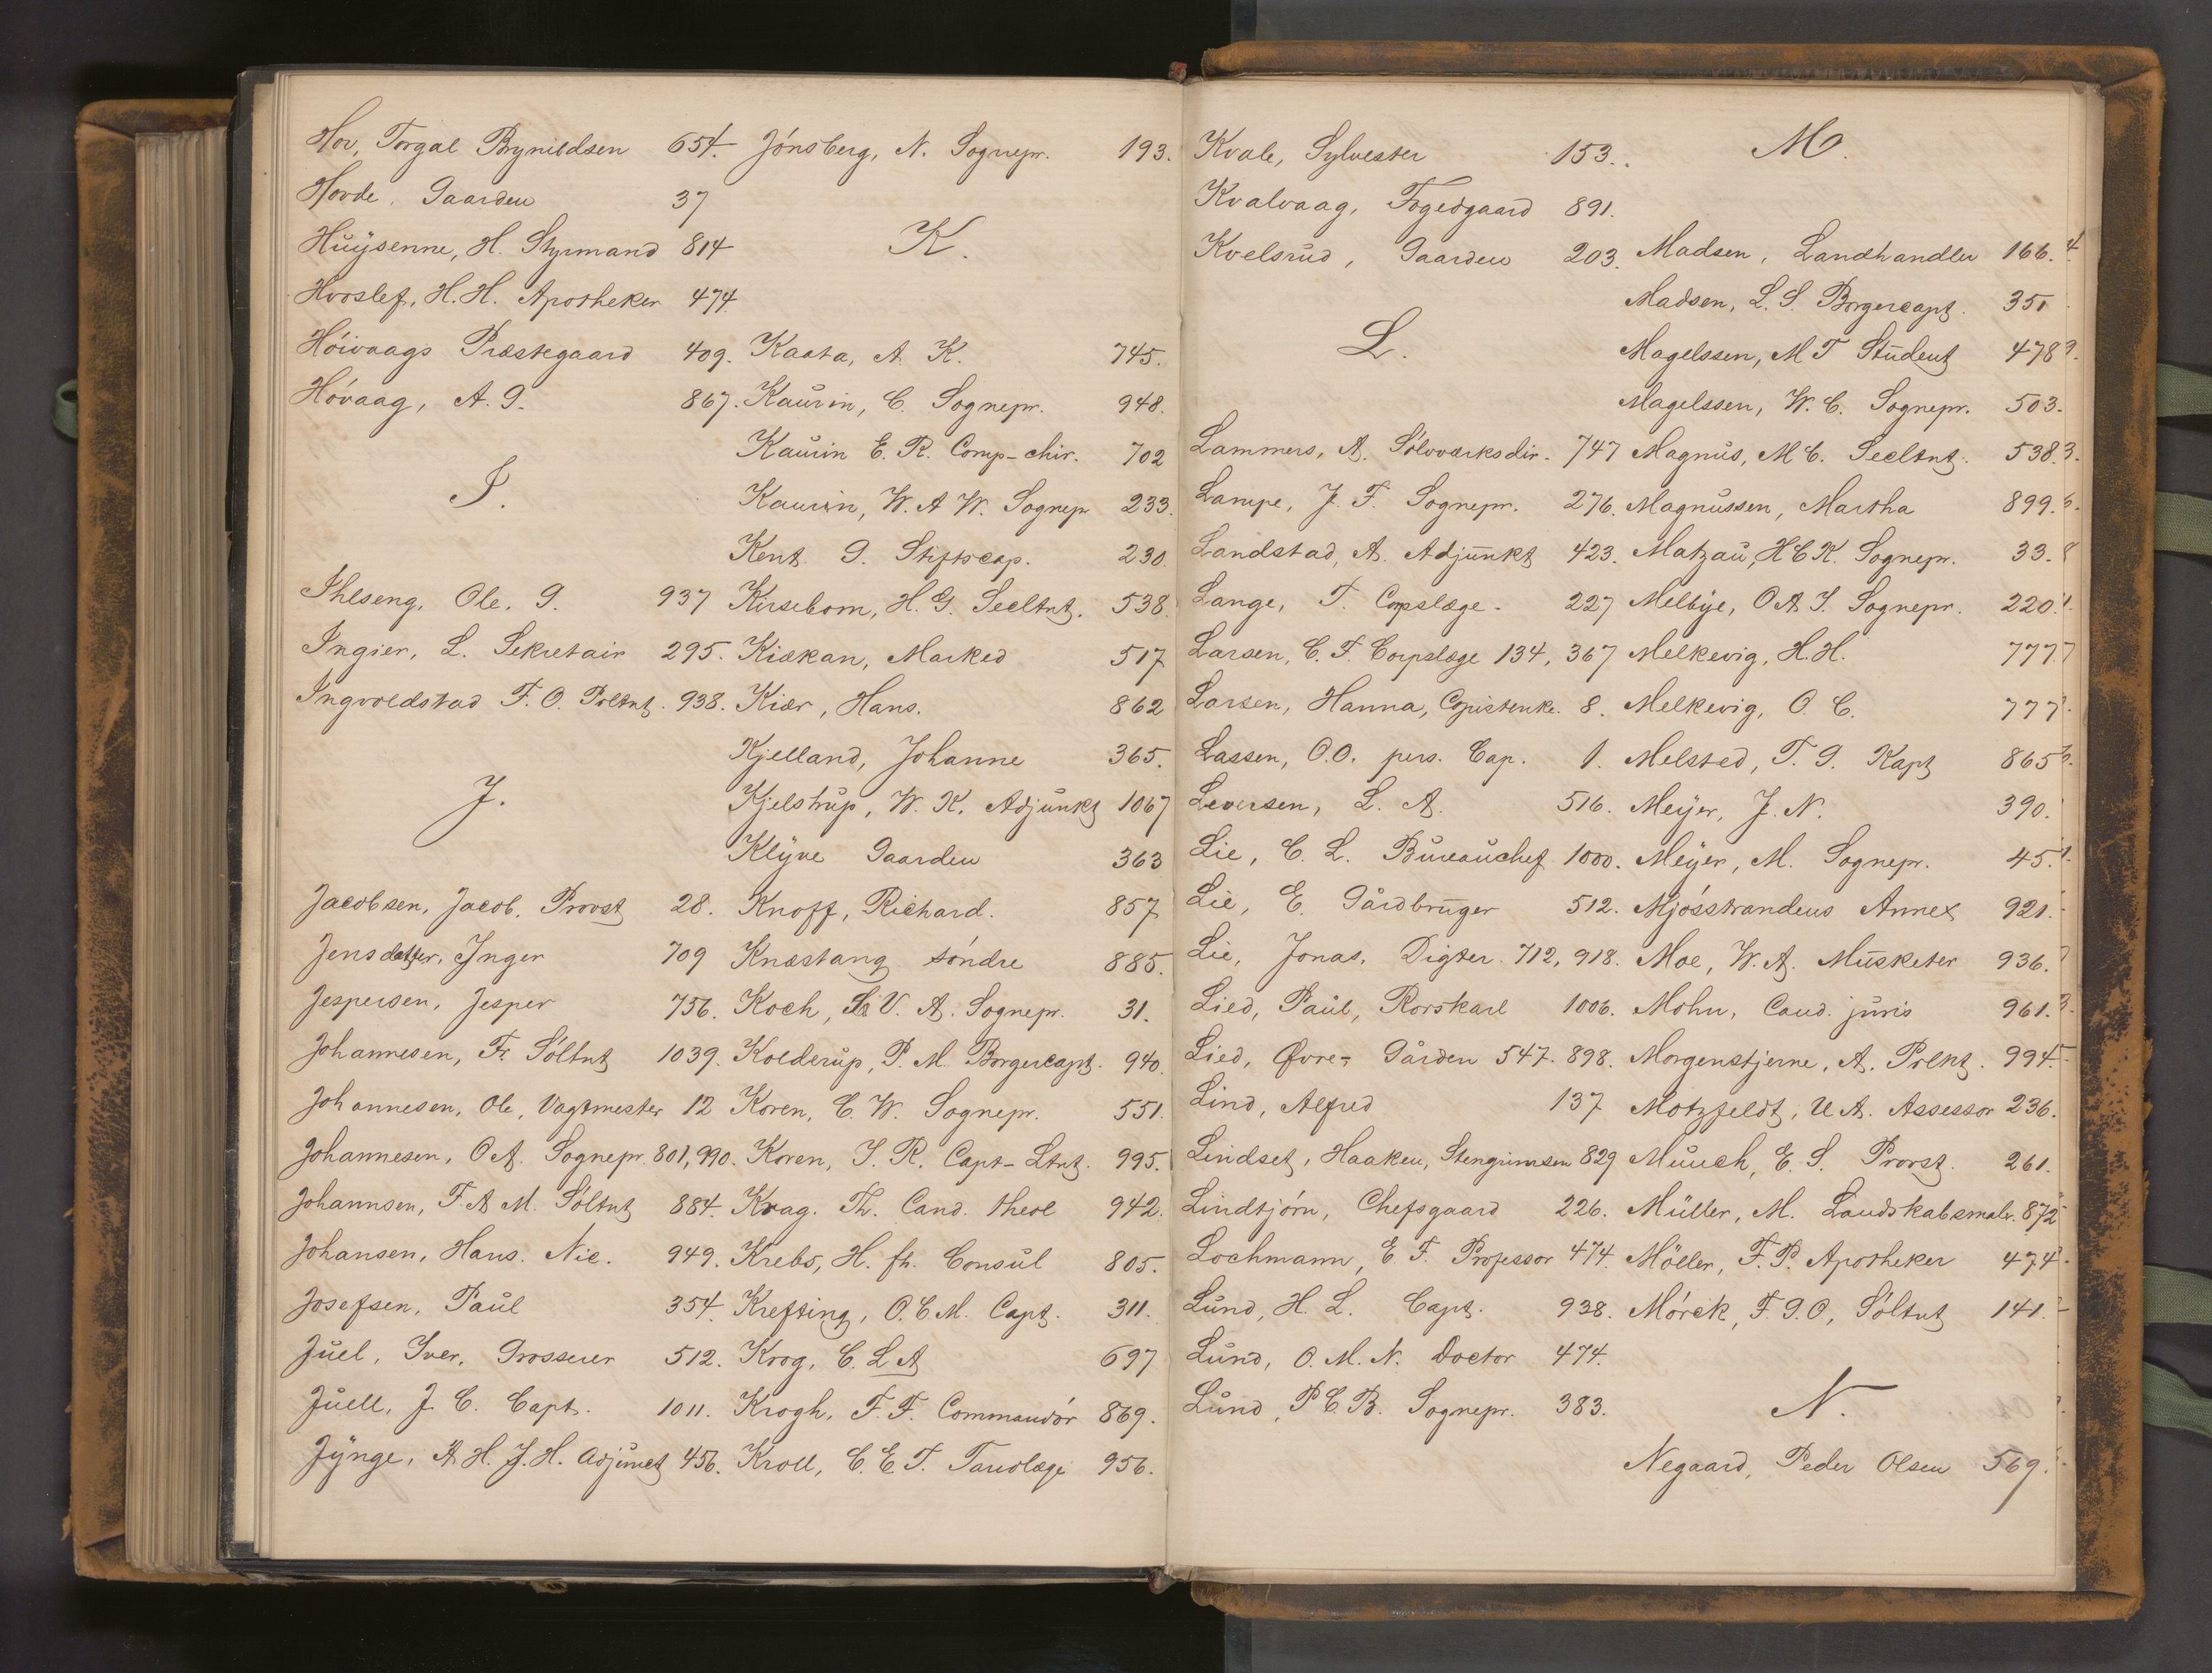 Hov, Torgal Brynildsen 654.
Hovde. Gaarden 37
Huÿsenne, H. Styrmand 814
Hvoslef, H. H. Apotheker 474.
Höivaags Præstegaard 409.
Hövaag, A. G. 867.
I.
Ihlseng, Ole. G. 937
Ingier, L. Sekretair 295.
Ingvoldstad F. O. Prltnt. 938.
J.
Jacobsen, Jacob, Provst 28.
Jensdatter, Inger 709
Jespersen, Jesper 756.
Johannesen, Fr Söltnt 1039.
Johannesen, Ole, Vagtmester 12
Johannesen, O A. Sognepr. 801, 990.
Johannsen, F. A M. Söltnt 884.
Johansen, Hans. Nic. 949.
Josefsen, Paul 354.
Juel, Iver, Grosserer 512.
Juell, J. C. Capt. 1011.
Jÿnge, A. H. J. H. Adjunct 456.
Jönsberg, N. Sognepr. 193.
K.
Kaata, A. K. 745.
Kaurin, C. Sognepr. 948.
Kaurin E. R. Comp-chir. 702
Kaurin, W. A W. Sognepr 233.
Kent G. Stiftscap. 230.
Kirsebom, H. G. Secltnt. 538.
Kiækan, Marked 517
Kiær, Hans. 862
Kjelland, Johanne 365.
Kjelstrup, W. K. Adjunkt 1067
Klÿve Gaarden 363
Knoff, Richard. 857
Knæstang söndre 885.
Koch, V. A. Sognepr. 31.
Kolderup, P. M. Borgercapt. 940.
Koren, C. W. Sognepr. 551.
Koren, I. R. Capt-Ltnt. 995.
Krag. Th. Cand. theol 942.
Krebs, H. fh. Consul 805.
Krefting, O. C M. Capt. 311.
Krog, C. L A 697
Krogh, F. F. Commandör 869.
Kroll, C. E T. Tandlæge 956.
Kvale, Sylvester 153.
Kvalvaag, Fogedgaard 891.
Kvelsrud, Gaarden 203.
L.
Lammers, A. Sölvværksdir. 747
Lampe, J. F. Sognepr. 276.
Landstad, A. Adjunkt 423.
Lange, T. Corpslæge. 227
Larsen, C. F. Corpslæge 134, 367
Larsen, Hanna, Copistenke. 8.
Lassen, O. O. pers. Cap. 1.
Leversen, L. A. 516.
Lie, C. L. Bureauchef 1000.
Lie, E. Gårdbruger 512.
Lie, Jonas, Digter. 712, 918.
Lied, Paul, Rorskarl 1006.
Lied, Øvre- Gården 547. 898.
Lind, Alfred 137
Lindset, Haaken, Stengrimsen 829
Lindtjörn, Chefsgaard 226.
Lochmann, E. F. Professor 474.
Lund, H. L. Capt. 938.
Lund, O. M. N. Doctor 474.
Lund, P C. B. Sognepr. 383.
M.
Madsen, Landhandler 166.
Madsen, L. S. Borgercapt. 351
Magelssen, M T Student 478
Magelssen, W. C. Sognepr. 503.
Magnus, M C. Secltnt. 538.
Magnussen, Martha 899.
Matzau, H C K. Sognepr. 33.
Melbÿe, O A I. Sognepr. 220.
Melkevig, H. H. 777
Melkevig, O. C. 777
Melsted, T. G. Kapt 865
Meÿer, J. N. 390.
Meÿer, M. Sognepr. 45.
Mjösstrandens Annex 921.
Moe, W. A. Musketer 936.
Mohn, Cand. juris 961.
Morgenstjerne, A. Prlnt. 994.
Motzfeldt, U A. Assessor 236.
Munch, E. S. Provst. 261.
Müller, M. Landskabsmaler. 872
Möller, F. P. Apotheker 474
Mörck, F. G. O, Söltnt 141.
N.
Negaard, Peder Olsen 569.